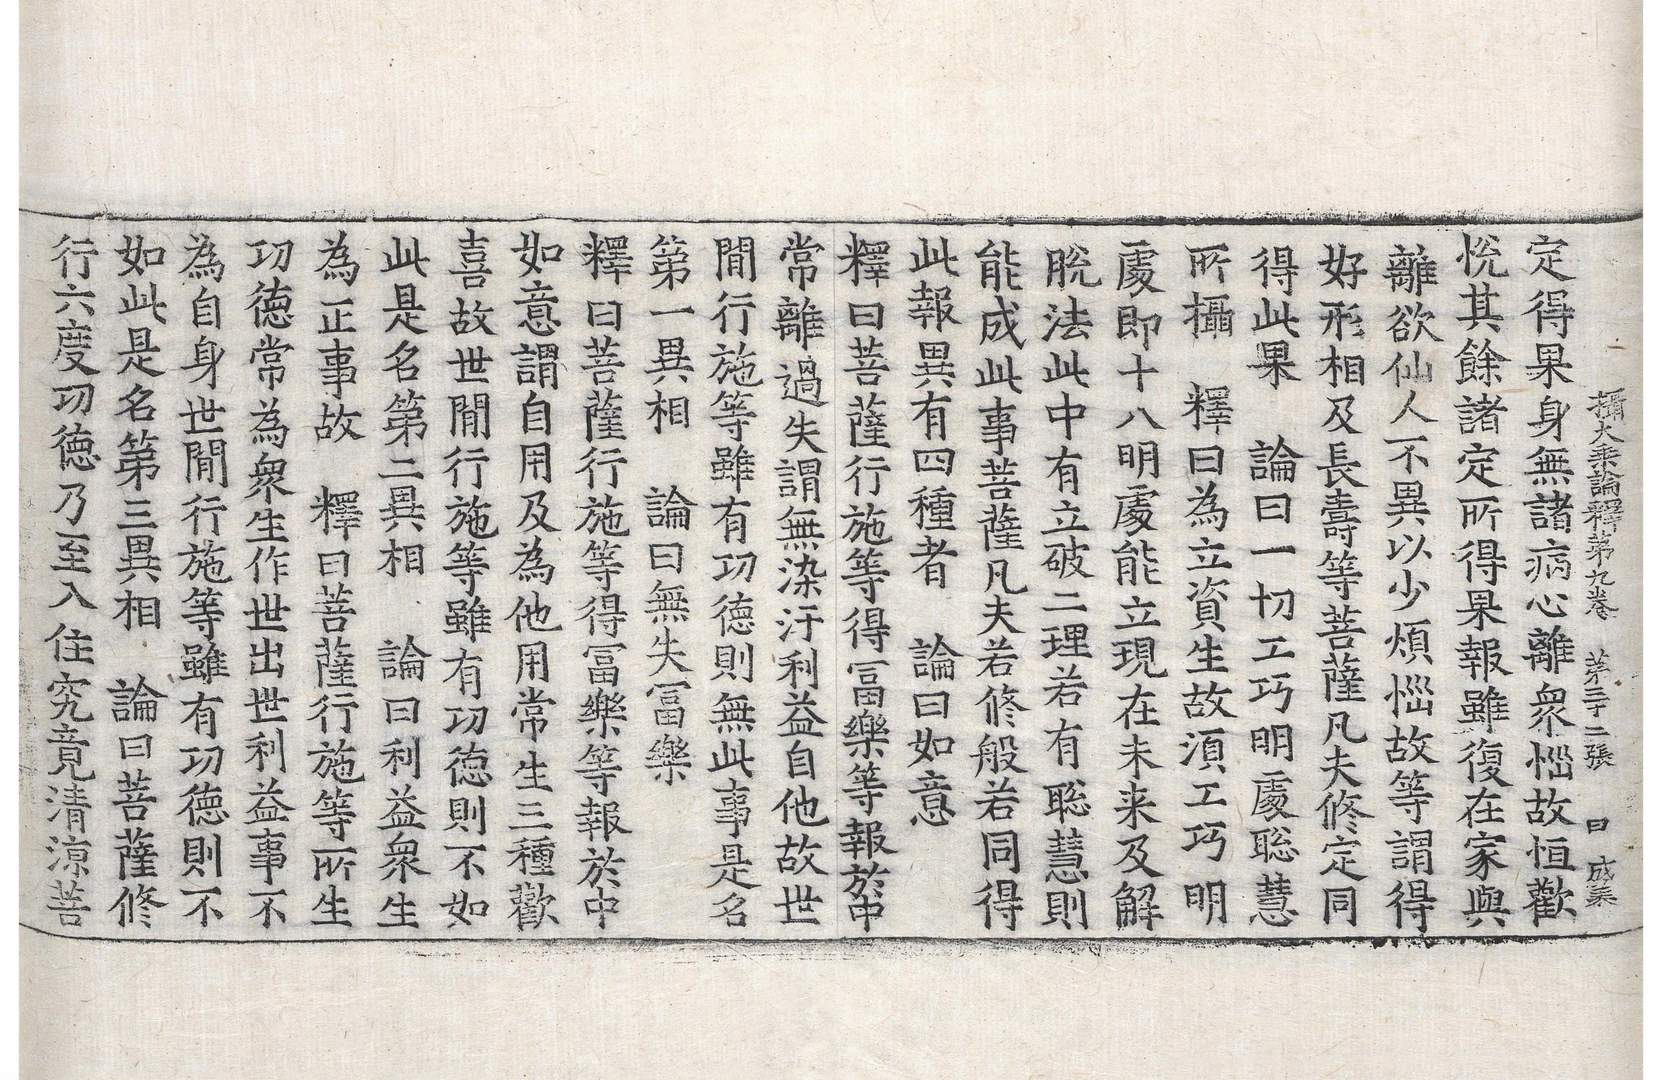 攝大乘論釋第九卷　第三十二張　曰　成㭍
定得果身無諸病心離衆惱故恒歡
悅其餘諸定所得果報雖復在家與
離欲仙人不異以少煩惱故等謂得
好形相及長壽等菩薩凡夫修定同
得此果　論曰一切工巧明處聡慧
所攝　釋曰為立資生故湏工巧明
處即十八明處能立現在未来及解
脫法此中有立破二理若有聡慧則
能成此事菩薩凡夫若修般若同得
此報異有四種者　論曰如意
釋曰菩薩行施等得冨樂等報於中
常離過失謂無染汙利益自他故世
閒行施等雖有功德則無此事是名
第一異相　論曰無失冨樂
釋曰菩薩行施等得冨樂等報於中
如意謂自用及為他用常生三種歡
喜故世閒行施等雖有功德則不如
此是名第二異相　論曰利益衆生
為正事故　釋曰菩薩行施等所生
功德常為衆生作世出世利益事不
為自身世閒行施等雖有功德則不
如此是名第三異相　論曰菩薩修
行六度功德乃至入住究竟清涼菩